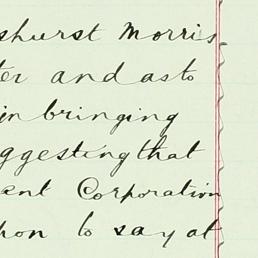 shurst Morris
ter and as to
in bringing
ggesting that
ant Corporation
pon to say at